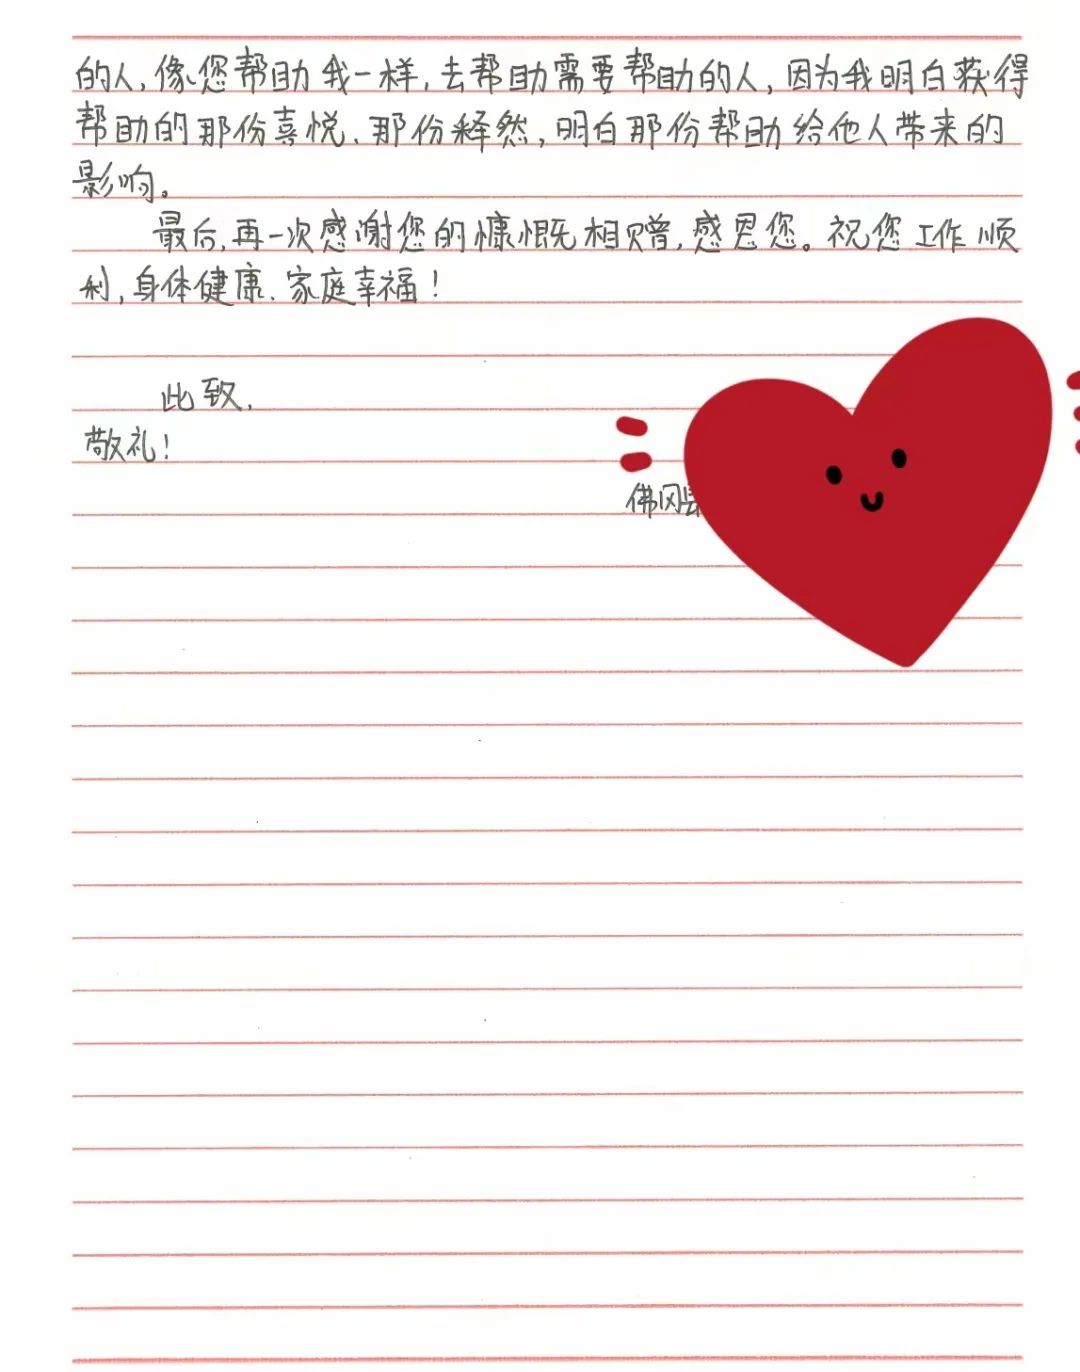 的人,像您帮助我一样,去帮助需要帮助的人,因为我明白获得
帮助的那份喜悦、那份释然,明白那份帮助给他人带来的
影响。
最后,再一次感谢您的慷慨相赠,感恩您。祝您工作顺
利,身体健康、家庭幸福!
此致,
敬礼!
佛冈县